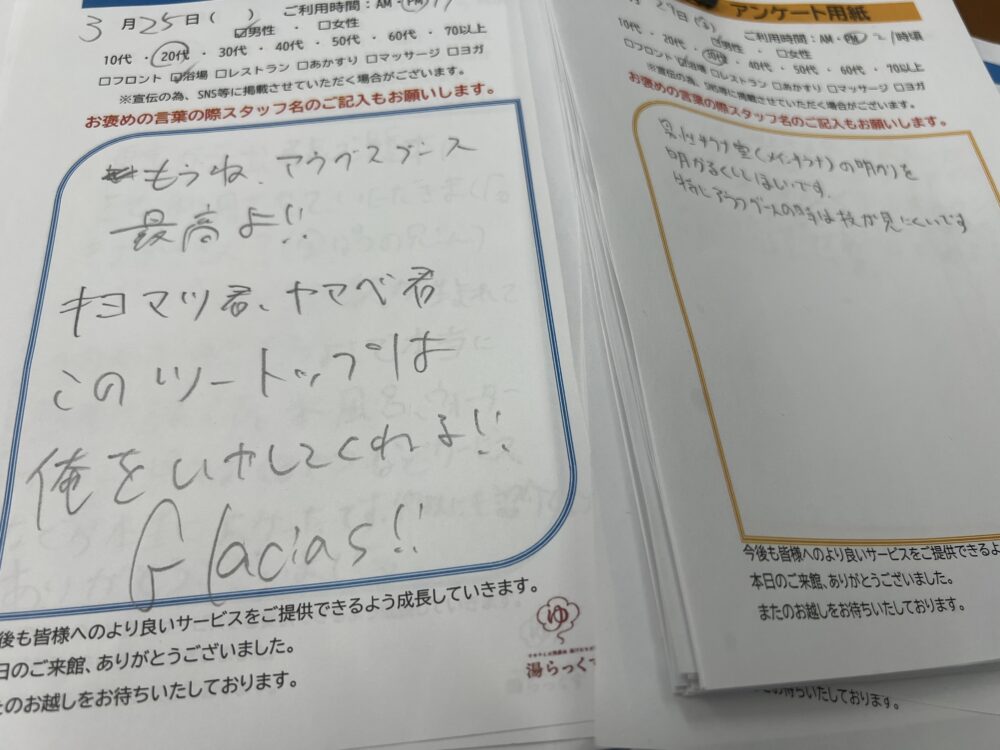 3月25日( ) ご利用時間:AM・PM
☑男性 ・ □女性
10代 ・ 20代 ・ 30代 ・ 40代 ・ 50代 ・ 60代 ・ 70以上
□フロント ☑浴場 □レストラン □あかすり □マッサージ □ヨガ
※宣伝の為、SNS等に掲載させていただく場合がございます。
お褒めの言葉の際スタッフ名のご記入もお願いします。
もうね、アウグスブンス
最高よ!!
キヨマツ君、ヤマベ君
このツートップは
俺をいやしてくれよ!!
Glacias!!
後も皆様へのより良いサービスをご提供できるよう成長していきます。
日のご来館、ありがとうございました。
たのお越しをお待ちいたしております。
ゆ
湯らっく
アンケート用紙
月27日( ) ご利用時間:AM・PM 21時頃
☑男性 ・ □女性
10代 ・ 20代 ・ 30代 ・ 40代 ・ 50代 ・ 60代 ・ 70以上
□フロント ☑浴場 □レストラン □あかすり □マッサージ □ヨガ
※宣伝の為、SNS等に掲載させていただく場合がございます。
お褒めの言葉の際スタッフ名のご記入もお願いします。
男性サウナ室(メインサウナ)の明かりを
明かるくしてほしいです。
特にアウフグースの時は技が見にくいです
今後も皆様へのより良いサービスをご提供できるよ
本日のご来館、ありがとうございました。
またのお越しをお待ちいたしております。
お待ちいたしております。